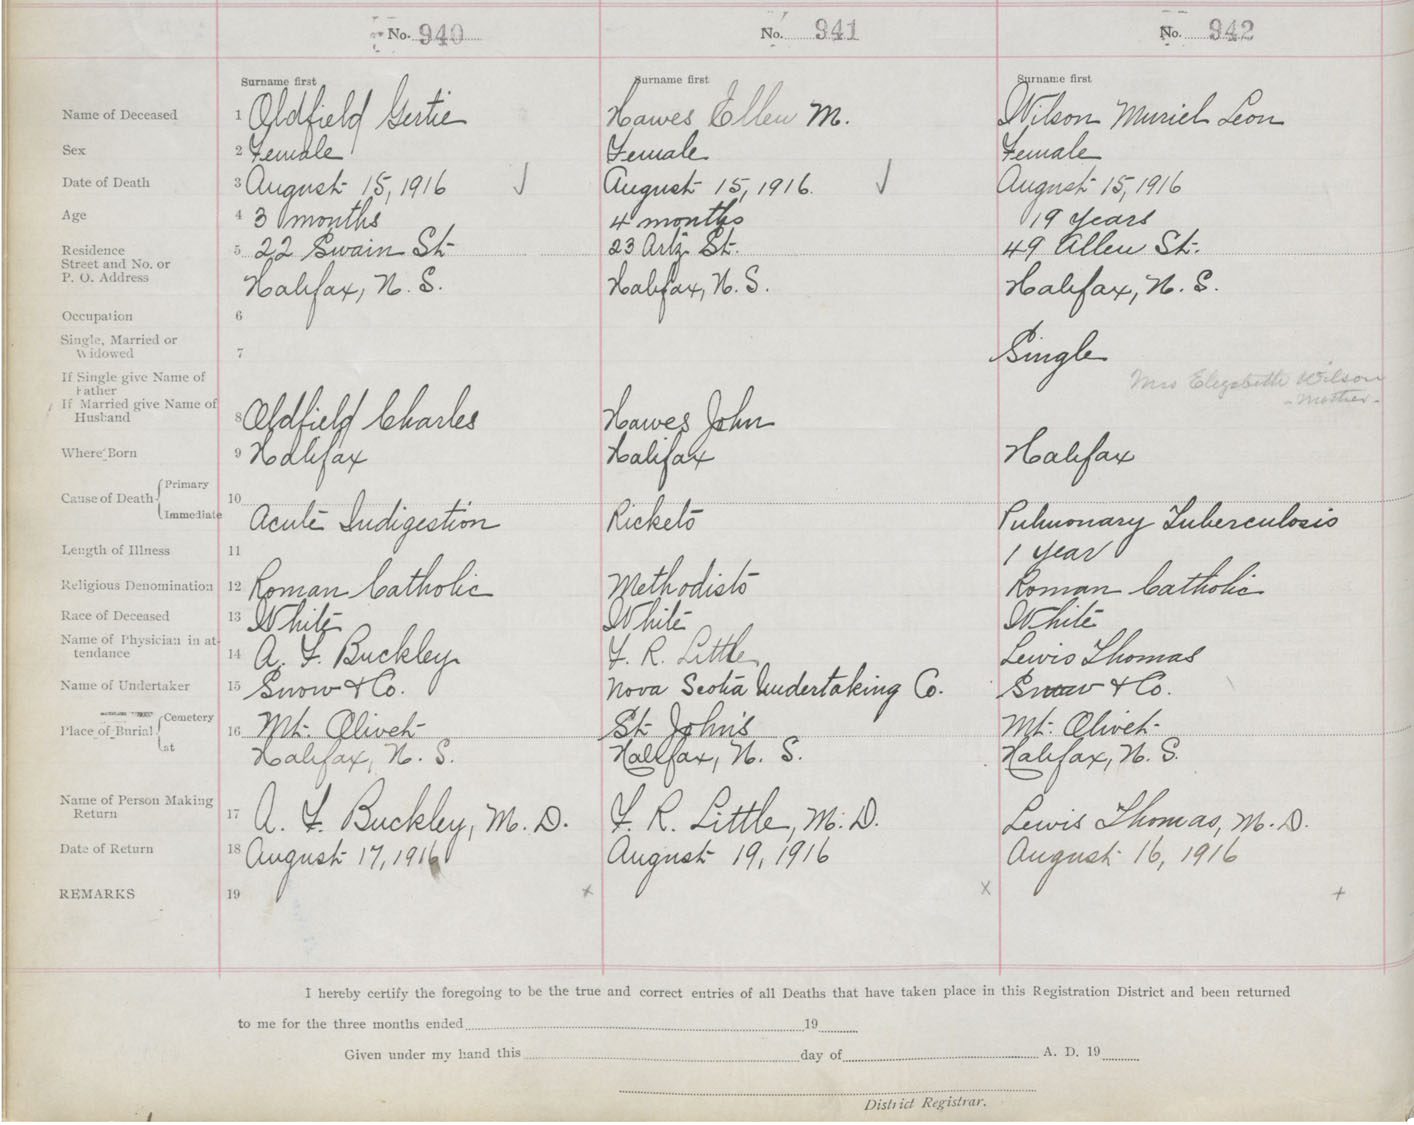 No. 940 No. 941 No. 942
Surname first Surname first Surname first
Name of Deceased 1 Oldfield Gertie Hawes Ellen M. Wilson Muriel Leon
Sex 2 Female Female Female
Date of Death 3 August 15, 1916 August 15, 1916. August 15, 1916
Age 4 3 months 4 months 19 years
Residence 5 22 Swain St. 23 Artz St. 49 Allen St.
Street and No. or
P. O. Address Halifax, N. S. Halifax, N. S. Halifax, N. S.
Occupation 6
Single, Married or
Widowed 7 Single
If Single give Name of
Father Mrs Elizabeth Wilson
If Married give Name of - Mother -
Husband 8 Oldfield Charles Hawes John
Where Born 9 Halifax Halifax Halifax
Primary
Cause of Death 10
Immediate Acute Indigestion Rickets Pulmonary Tuberculosis
Length of Illness 11 1 year
Religious Denomination 12 Roman Catholic Methodists Roman Catholic
Race of Deceased 13 White White White
Name of Physician in at-
tendance 14 A. F. Buckley F. R. Little Lewis Thomas
Name of Undertaker 15 Snow & Co. Nova Scotia Undertaking Co. Snow & Co.
Cemetery
Place of Burial 16 Mt. Olivet St. John's Mt. Olivet
at Halifax, N. S. Halifax, N. S. Halifax, N. S.
Name of Person Making
Return 17 A. F. Buckley, M. D. F. R. Little, M. D. Lewis Thomas, M. D.
Date of Return 18 August 17, 1916 August 19, 1916 August 16, 1916
REMARKS 19 x x +
I hereby certify the foregoing to be the true and correct entries of all Deaths that have taken place in this Registration District and been returned
to me for the three months ended 19
Given under my hand this day of A. D. 19
District Registrar.